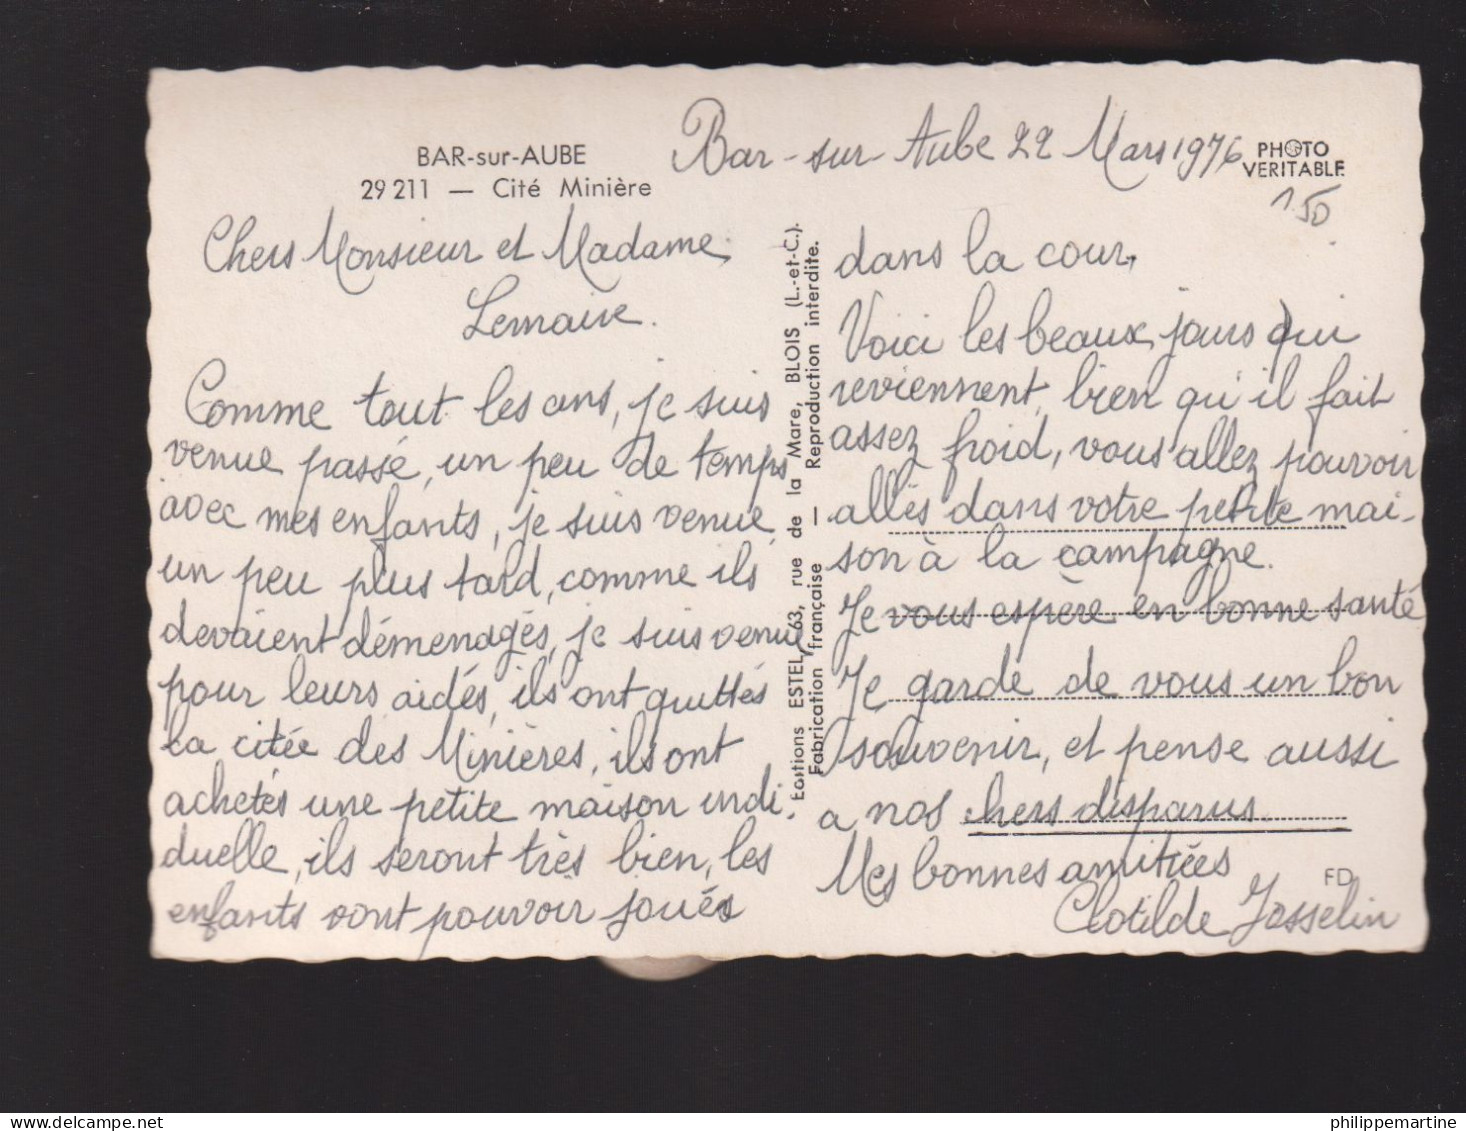 BAR-sur-AUBE
29 211 — Cité Minière
Bar-sur-Aube 22 Mars 1976
PHOTO
VERITABLE
150
Chers Monsieur et Madame
Lemaire.
Comme tout les ans, je suis
venue passé, un peu de temps
avec mes enfants, je suis venue
un peu plus tard, comme ils
devaient démenagés, je suis venue
pour leurs aidés, ils ont quittés
la citée des Minières, ils ont
achetés une petite maison indi-
duelle, ils seront très bien, les
enfants vont pouvoir joués
Editions ESTEL, 63, rue de la Mare, BLOIS (L.-et-C.).
Fabrication française — Reproduction interdite.
dans la cour,
Voici les beaux jours qui
reviennent, bien qu'il fait
assez froid, vous allez pouvoir
allés dans votre petite mai-
son à la campagne.
Je vous espère en bonne santé
Je garde de vous un bon
souvenir, et pense aussi
a nos chers disparus.
Mes bonnes amitiées
FD
Clotilde Josselin
philippemartine